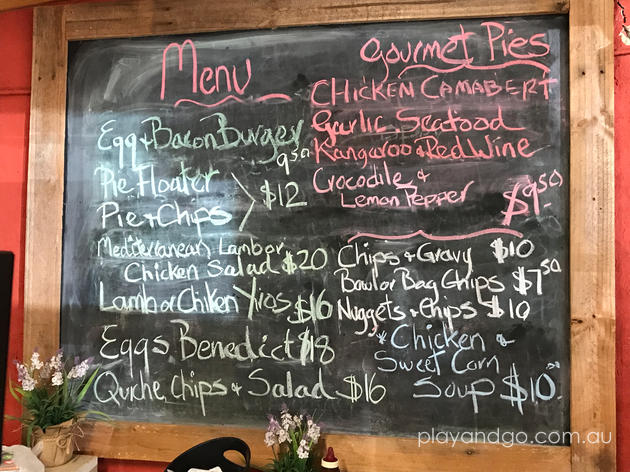 Menu
Egg + Bacon Burger
9.50
Pie Floater
Pie + Chips
$12
Mediterranean Lamb or
Chicken Salad $20
Lamb or Chiken Yiros $16
Eggs Benedict $18
Quche, Chips + Salad $16
Gourmet Pies
CHICKEN CAMABERT
Garlic Seafood
Kangaroo & Red Wine
Crocodile &
Lemon Pepper
$9.50
Chips + Gravy $10
Bowl or Bag Chips $7.50
Nuggets + Chips $10
Chicken &
Sweet Corn
Soup $10.00
playandgo.com.au